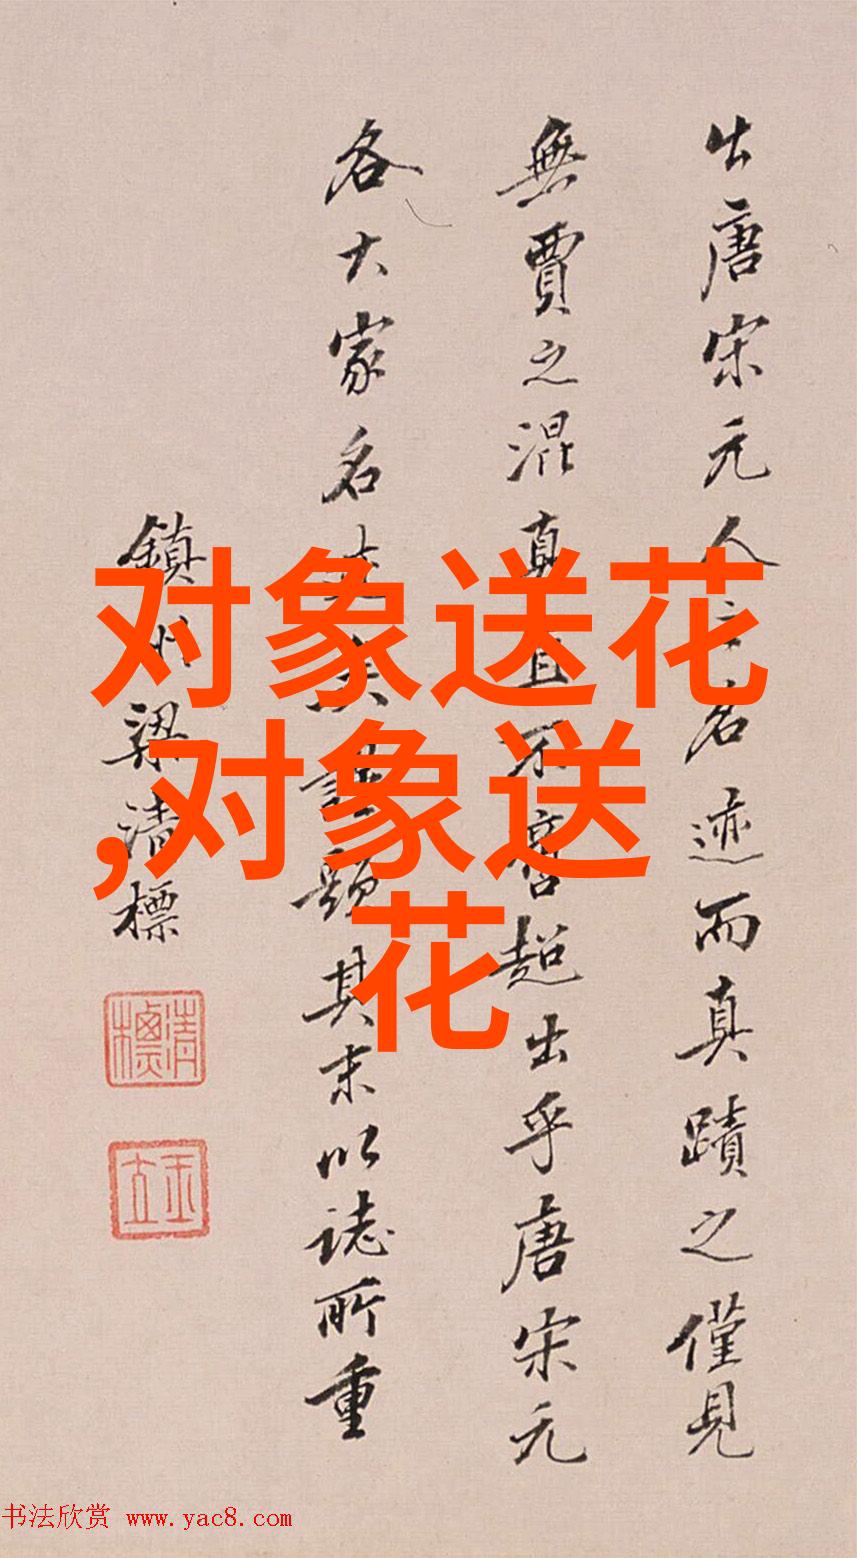 出唐宋元人之名迹而真蹟之僅見
無賈之混真且不啻超出乎唐宋元
各大家名題其末以誌所重
鎮州梁清標
清標
玉立
对象送花
,对象送
花
书法欣赏 www.yac8.com